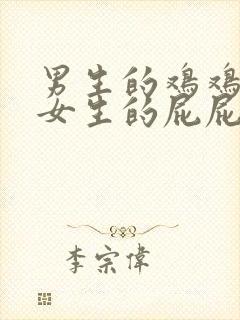 男生的鸡鸡
女生的屁屁
李宗偉